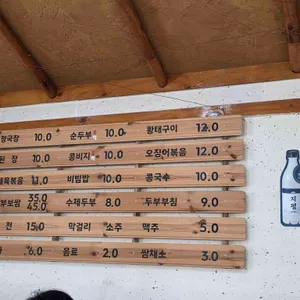 정국장 10.0 순두부 10.0 황태구이 12.0
된 장 10.0 콩비지 10.0 오징어볶음 12.0
제육볶음 11.0 비빔밥 10.0 콩국수 10.0
두부보쌈 35.0 45.0 수제두부 8.0 두부부침 9.0
전 15.0 막걸리 소주 맥주 5.0
6.0 음료 2.0 쌈채소 3.0
지평